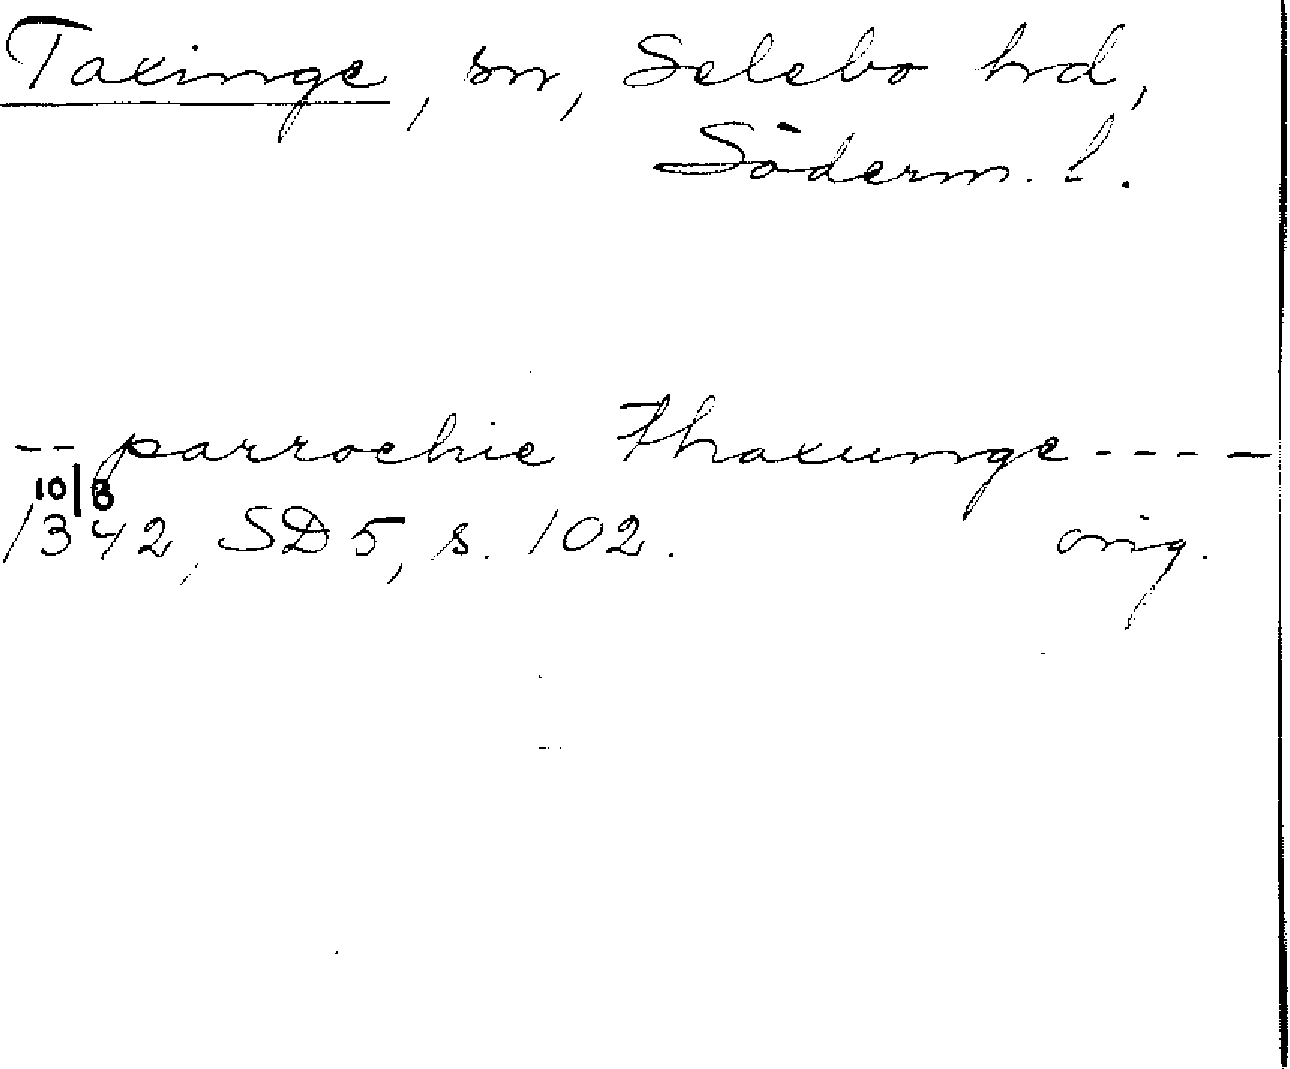 Taxinge, sn, Selebo hrd,
Söderm. l.
-- parrochie Thaxunge ----
10/8
1342, SD 5, s. 102. orig.